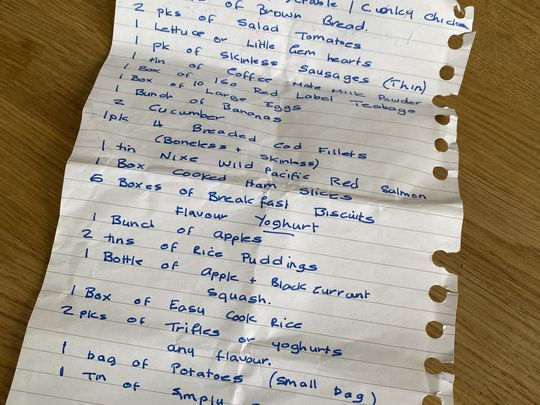 of Brown Bread.
2 pks of Salad Tomatoes
1 Lettuce or Little Gem hearts
1 pk of skinless Sausages (Thin)
1 tin of Coffee Mate Milk Powder
1 Box of 160 Red Label Teabags
1 Box of 10 Large Eggs
1 Bunch of Bananas
2 Cucumber
1pk 4 Breaded Cod Fillets
(Boneless + Skinless)
1 tin Nixe Wild Pacific Red Salmon
1 Box Cooked Ham Slices
6 Boxes of Breakfast Biscuits
Flavour Yoghurt
1 Bunch of apples
2 tins of Rice Puddings
1 Bottle of apple + Blackcurrant
squash.
1 Box of Easy Cook Rice
2 pks of Trifles or yoghurts
any flavour.
1 bag of Potatoes (small bag)
1 Tin of Simply